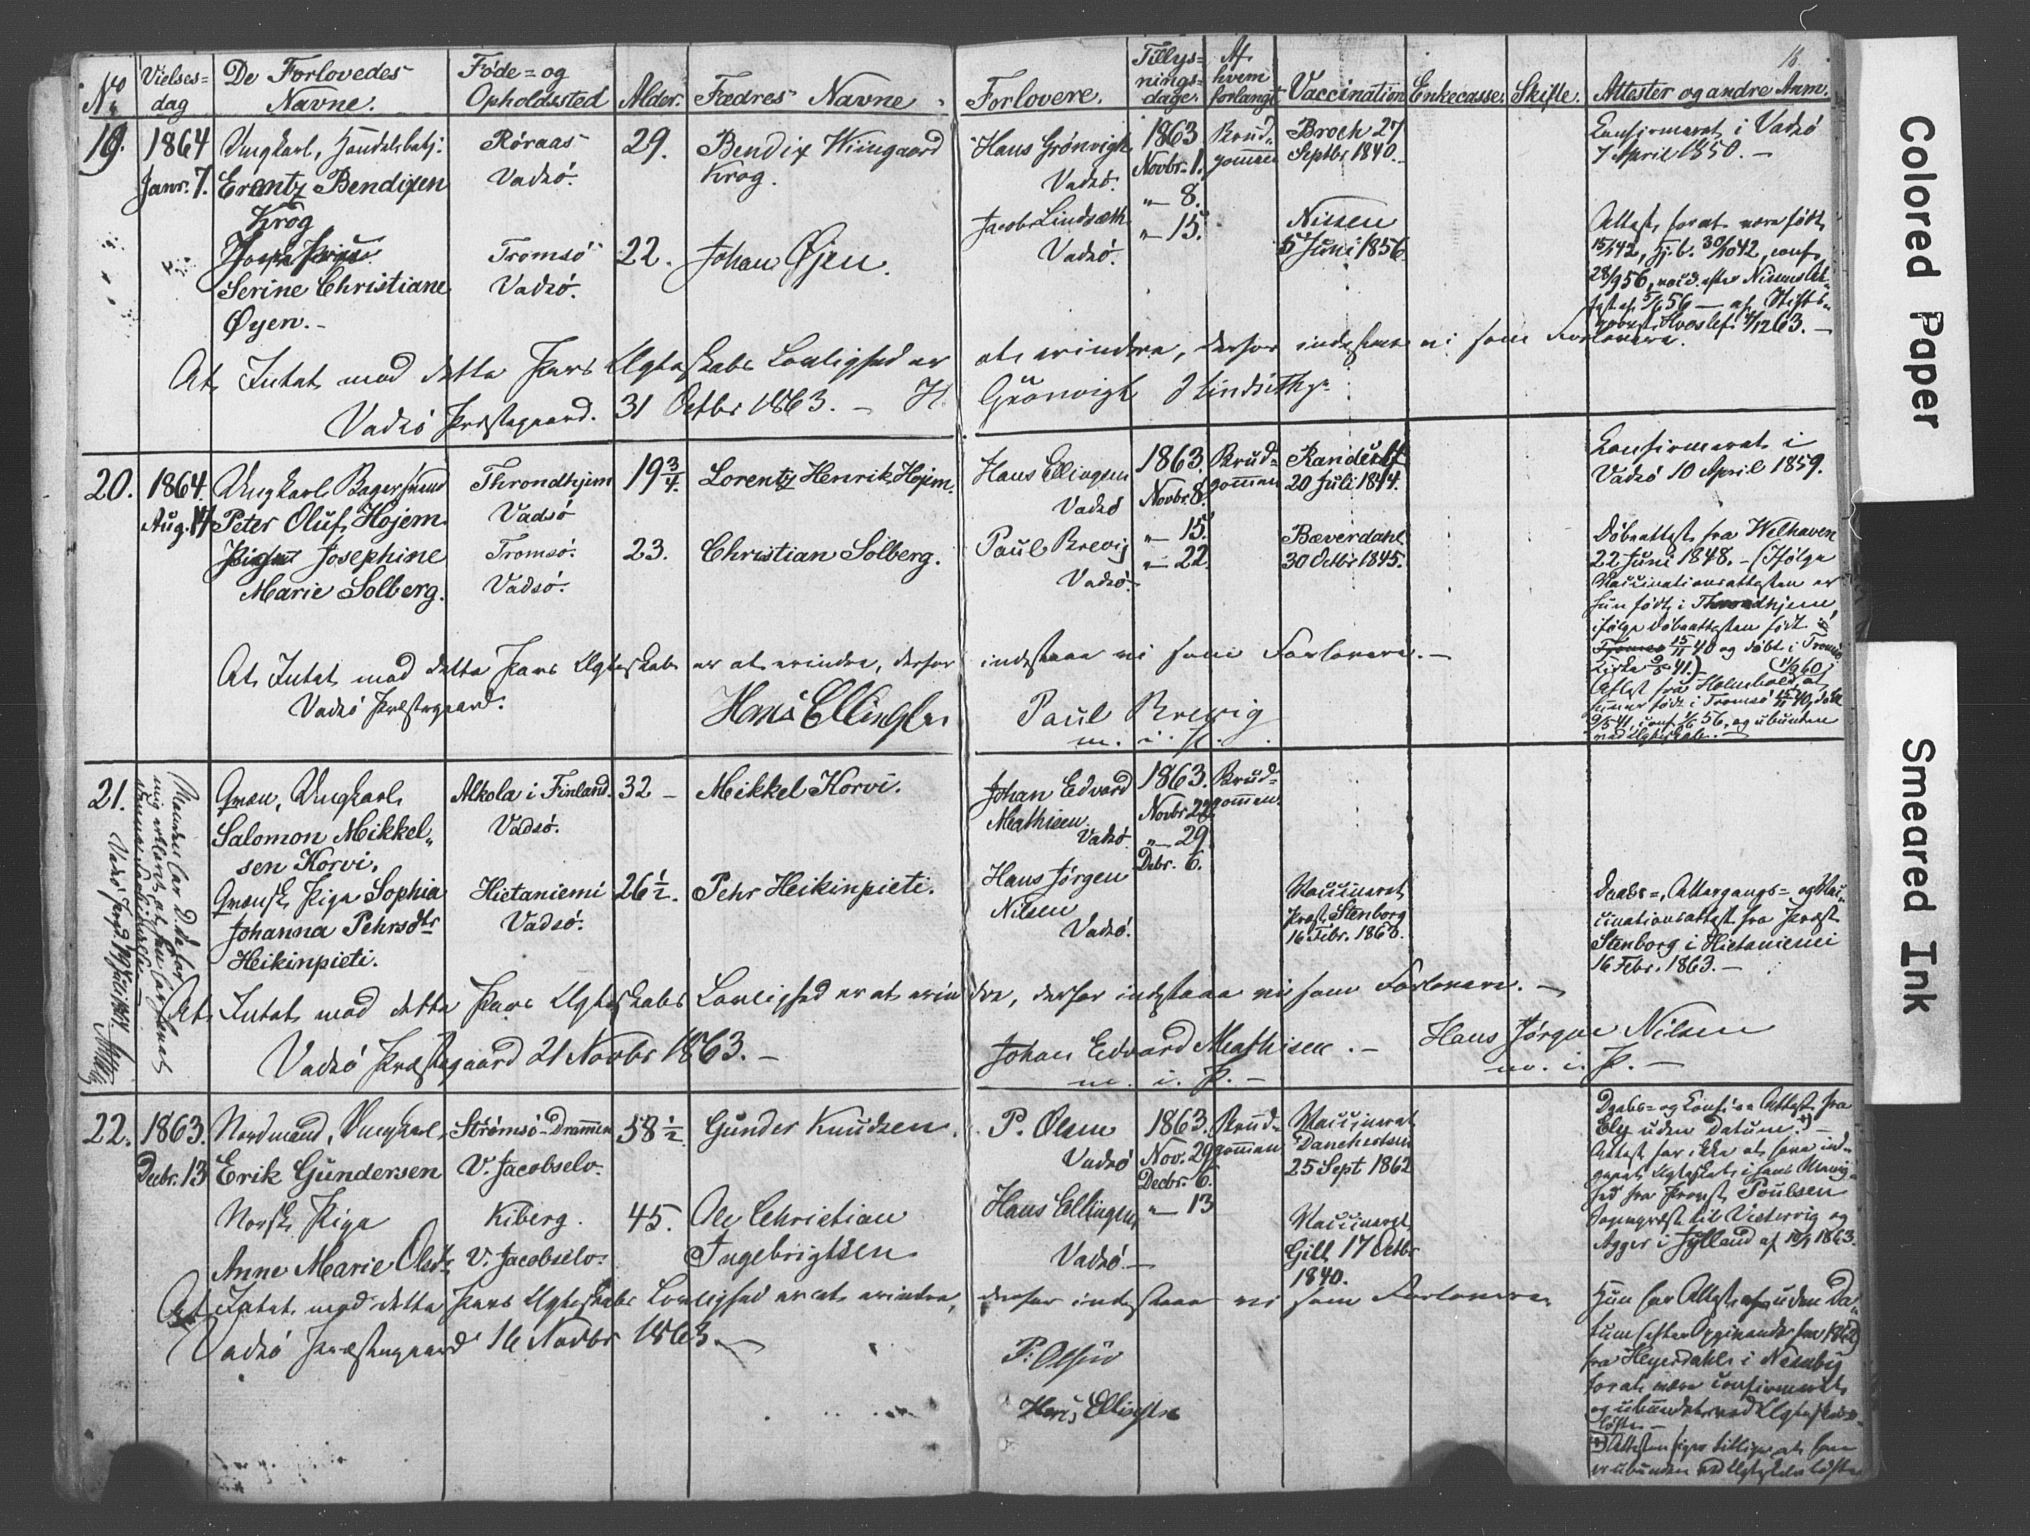 No
Vielses=
dag
De Forlovedes
Navne.
Føde= og
Opholdssted
Alder.
Fædres Navne.
Forlovere.
Tillys=
nings=
dage.
Af
hvem
forlangt
Vaccination
Enkecasse.
Skifte.
Attester og andre Anm.
19.
1864
Janr. 7.
Ungkarl, Handelsbetj.
Erentz Bendixen
Krog
Serine Christiane
Øyen.
Røraas
Vadsø.
Tromsø
Vadsø.
29.
22.
Bendix Wiingaard
Krog.
Johan Øjen.
Hans Grønvigh
Vadsø.
Jacob Lindsæth
Vadsø.
1863
Novbr. 1.
" 8.
" 15.
Brud=
gommen
Broch 27
Septbr 1840.
Nissen
5 Juni 1856.
Confirmeret i Vadsø
7 April 1850.
Attest for at være født
15/1 42, hj.d. 30/10 42, conf.
28/9 56, vacc. efter Nissens At=
test af 5/6 56 — af Stifts=
provst Hvoslef 4/12 63.
At Intet mod dette Pars Ægteskabs Lovlighed er at erindre, derfor indestaae vi som Forlovere.
Vadsø Præstegaard. 31 Octbr 1863. — H. Grönvigh J Lindseth
20.
1864
Aug. 14
Ungkarl Bagersvend
Peter Oluf Hojem
Pige Josephine
Marie Solberg.
Throndhjem
Vadsø
Tromsø.
Vadsø.
19 3/4.
23.
Lorentz Henrik Hojem.
Christian Solberg.
Hans Ellingsen
Vadsø
Paul Brevig
Vadsø.
1863.
Novbr 8.
" 15.
" 22.
Brud=
gommen
Randulf
20 Juli 1844.
Bæverdahl
30 Octbr 1845.
Confirmeret i
Vadsø 10 April 1859.
Døbeattest fra Welhaven
22 Juni 1848. — (Ifølge
Vaccinationsattesten er
hun født i Throndhjem,
ifølge Døbeattesten født i
Tromsø 15/11 40 og døbt i Tromsø
Kirke 9/5 41.)
Attest fra Holmboe
født i Tromsø 15/11 40, døbt
9/5 41, conf. 56, og ubunden
ved Ægteskab.
At Intet mod dette Pars Ægteskab er at erindre, derfor indestaae vi som Forlovere. —
Vadsø Præstegaard. Hans Ellingsen Paul Brevig
m. i. P.
21.
Qvæn, Ungkarl
Salomon Mikkel=
sen Korvi.
Qvænsk Pige Sophia
Johanna Pehrsdtr
Heikinpieti.
Alkola i Finland.
Vadsø.
Hietaniemi
Vadsø.
32 —
26 1/2.
Mikkel Korvi.
Pehr Heikinpieti.
Johan Edvard
Mathisen
Vadsø
Hans Jørgen
Nilsen
Vadsø.
1863.
Novbr 22
" 29
Debr. 6.
Brud=
gommen.
Vaccineret
Præst Stenborg
16 Febr. 1863.
Daabs=, Attergangs= og Vac=
cinationsattest fra Præst
Stenborg i Hietaniemi
16 Febr. 1863.
At Intet mod dette Pars Ægteskabs Lovlighed er at erindre, derfor indestaae vi som Forlovere. —
Vadsø Præstegaard 21 Novbr 1863. — Johan Edvard Mathisen. — Hans Jørgen Nilsen
m. i. P. — m. i. P. —
22.
1863.
Decbr. 13
Nordmand, Ungkarl,
Erik Gundersen
Norsk Pige
Anne Marie Olsdtr
Strømsø=Drammen
V. Jacobselv.
Kiberg.
V. Jacobselv.
58 1/2
45.
Gunder Knudsen.
Ole Christian
Ingebrigtsen
P. Olsen
Vadsø
Hans Ellingsen
Vadsø. —
1863.
Nov. 29
Decbr. 6.
" 13
Brud=
gommen
Vaccineret
Danchertsen
25 Sept 1862
Vaccineret
Gill 17 Octbr
1840.
Daabs= og Confirm. Attest fra
Ely uden Datum.
Attest for ikke at have ind=
gaaet Ægteskab i
fra Provst Poulsen
Sognepræst til Vestervig og
Agger i Jylland af 10/9 1863.
Hun har Attest uden Da=
tum (efter Opgivende fra 1862)
fra Heyerdahl i Nesseby
for at være confirmeret
og ubunden ved Ægteskabs=
løfte. —
Attesten siger tillige at han
er ubunden ved Ægteskabsløfte
At Intet mod dette Pars Ægteskabs Lovlighed er at erindre, derfor indestaae vi som Forlovere
Vadsø Præstegaard 16 Novbr 1863. —
P. Olsen
Hans Ellingsen
Colored Paper
Smeared Ink